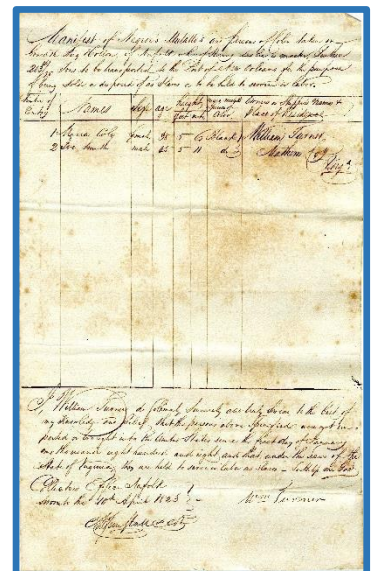 Manifest of Negroes Mulattos and persons of Color taken on
board the Brig of Norfolk is master, burthen
Tons to be transported to the Port of New Orleans for the purpose
of being Sold or disposed of as Slaves or to be held to service or labor.
Number of Entry Names Sex age height feet inch Color Owners or Shippers Names & Place of Residence
1 Maria female 5 6 Black William Turner
2 Joe Smith male 25 5 11 do Mathews Co.
Virga
I William Turner do Solemnly Sincerely and truly Swear to the best of
my knowledge and belief, that the persons above Specified were not im-
ported or brought into the United States since the first day of January
one thousand eight hundred and eight, and that under the laws of the
State of Virginia, they are held to service or labor as slaves - So Help me God
Collectors Office Norfolk
sworn to this 20th April 1823
Wm Turner